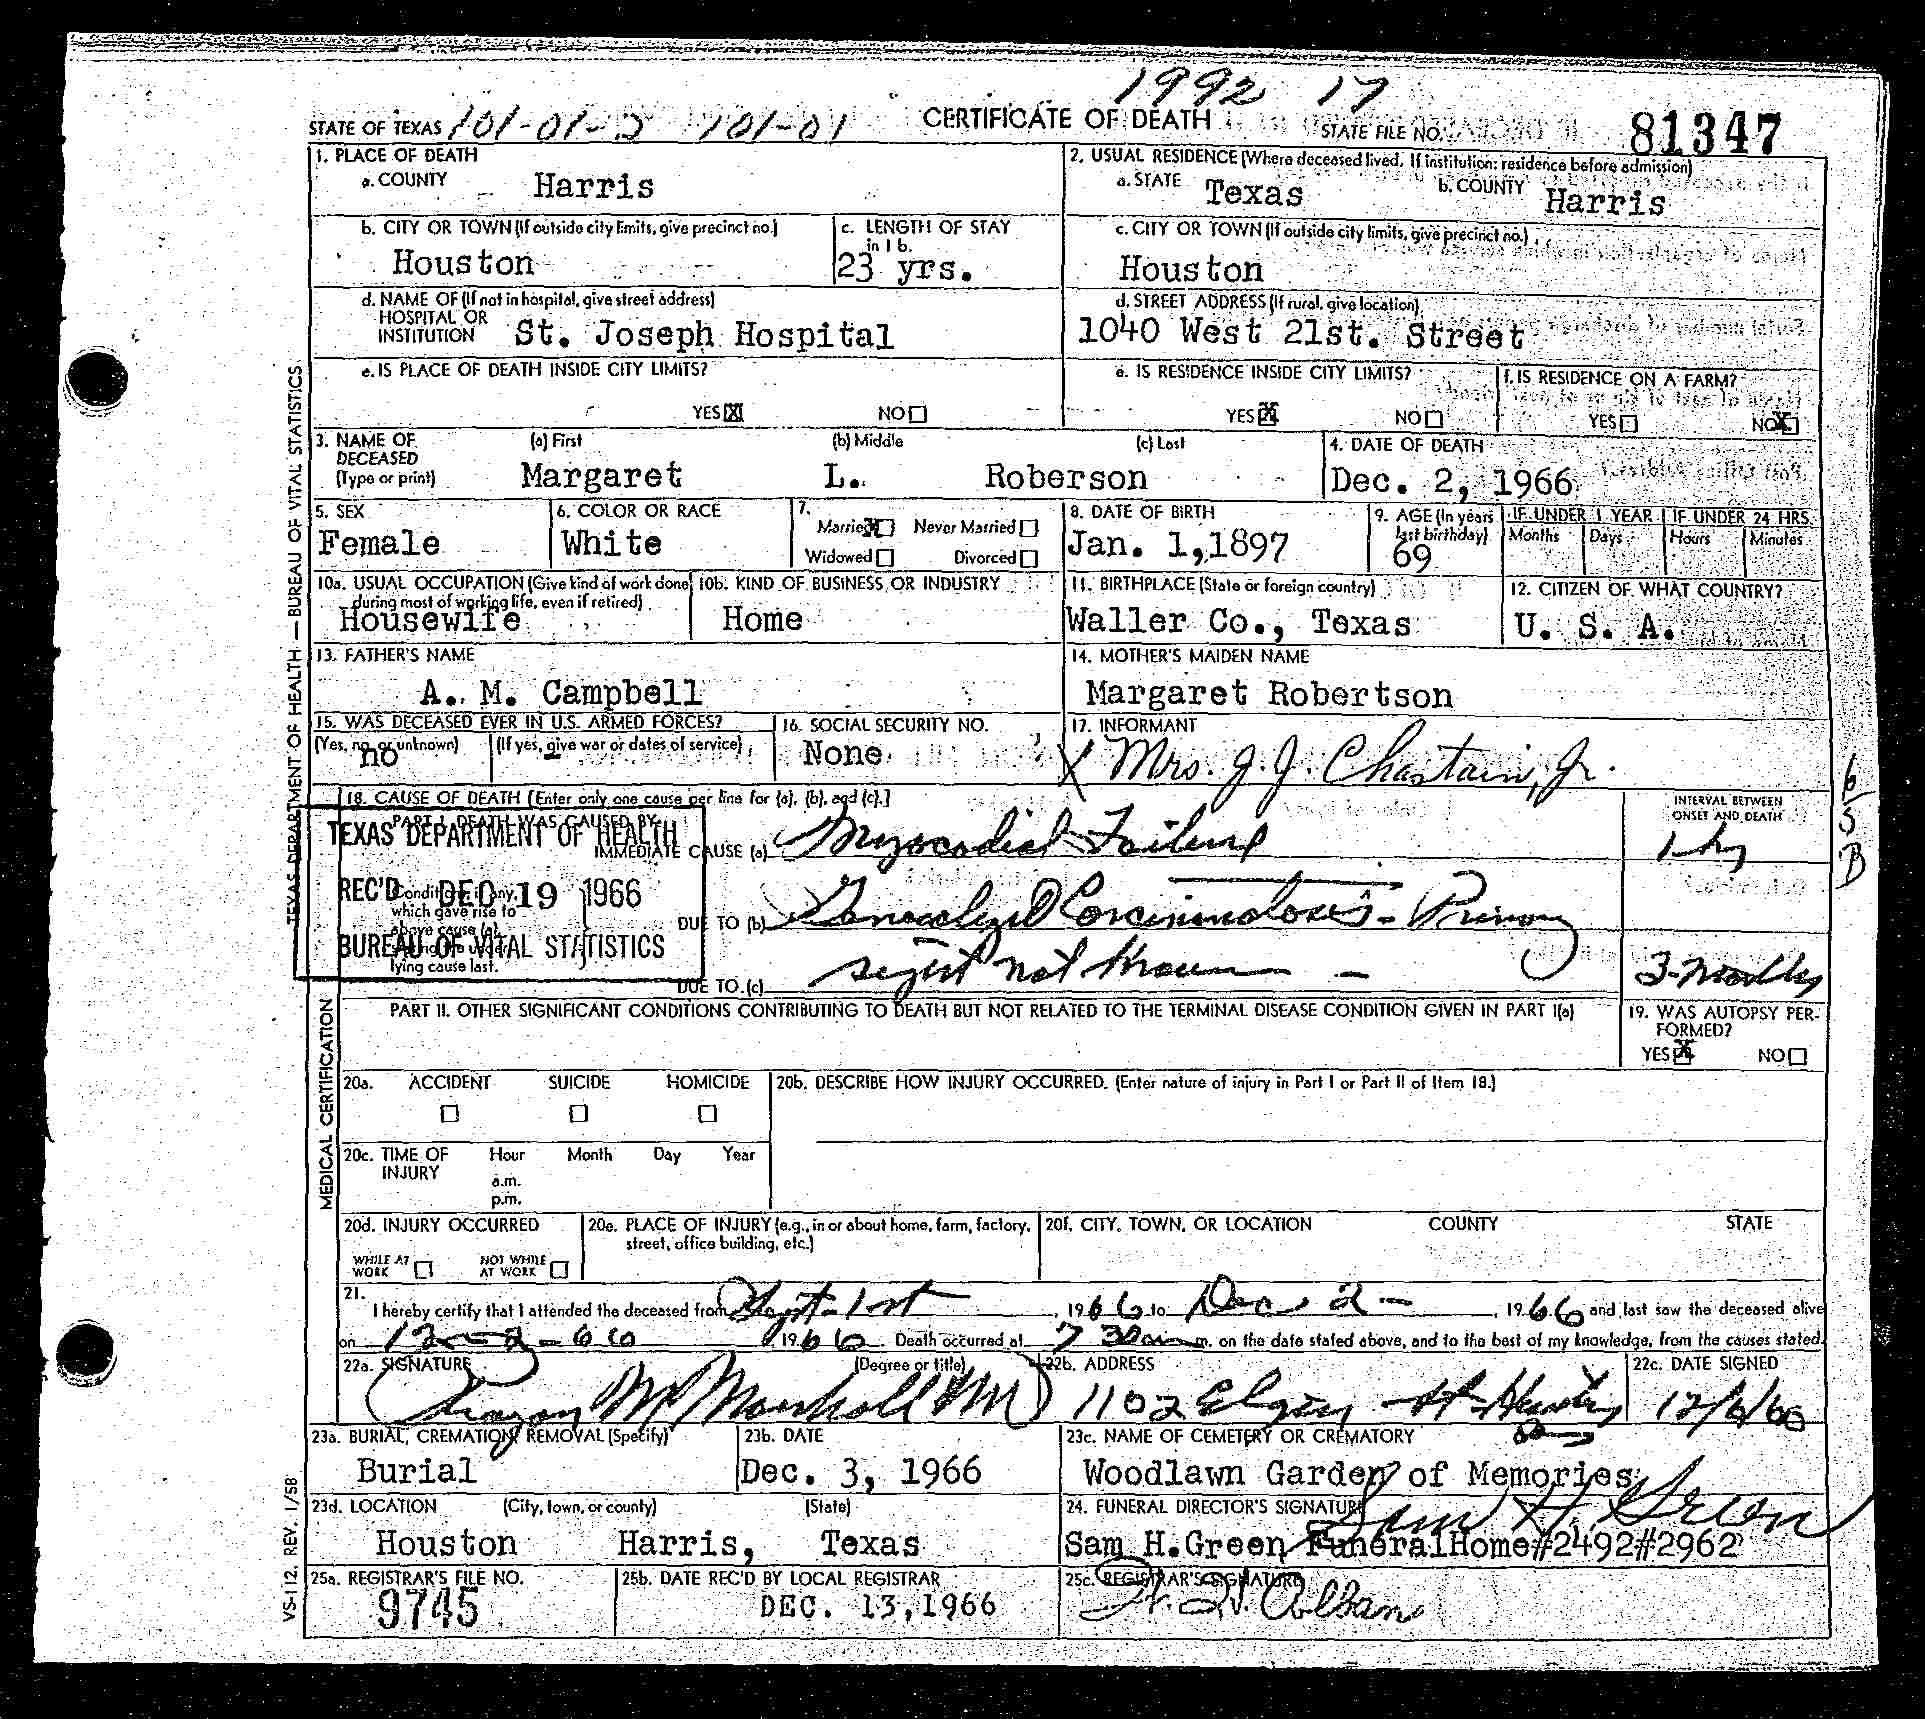 1992 17
STATE OF TEXAS 101-01-2 101-01 CERTIFICATE OF DEATH STATE FILE NO. 81347
1. PLACE OF DEATH
a. COUNTY Harris
2. USUAL RESIDENCE (Where deceased lived. If institution: residence before admission)
a. STATE Texas b. COUNTY Harris
b. CITY OR TOWN (If outside city limits, give precinct no.)
Houston
c. LENGTH OF STAY
in 1 b.
23 yrs.
c. CITY OR TOWN (If outside city limits, give precinct no.)
Houston
d. NAME OF (If not in hospital, give street address)
HOSPITAL OR
INSTITUTION St. Joseph Hospital
d. STREET ADDRESS (If rural, give location)
1040 West 21st. Street
e. IS PLACE OF DEATH INSIDE CITY LIMITS?
YES X NO
e. IS RESIDENCE INSIDE CITY LIMITS?
YES X NO
f. IS RESIDENCE ON A FARM?
YES NO X
3. NAME OF DECEASED (Type or print)
(a) First (b) Middle (c) Last
Margaret L. Roberson
4. DATE OF DEATH
Dec. 2, 1966
5. SEX
Female
6. COLOR OR RACE
White
7.
Married X Never Married
Widowed Divorced
8. DATE OF BIRTH
Jan. 1,1897
9. AGE (In years last birthday)
69
IF UNDER 1 YEAR IF UNDER 24 HRS.
Months Days Hours Minutes
10a. USUAL OCCUPATION (Give kind of work done during most of working life, even if retired)
Housewife
10b. KIND OF BUSINESS OR INDUSTRY
Home
11. BIRTHPLACE (State or foreign country)
Waller Co., Texas
12. CITIZEN OF WHAT COUNTRY?
U. S. A.
13. FATHER'S NAME
A. M. Campbell
14. MOTHER'S MAIDEN NAME
Margaret Robertson
15. WAS DECEASED EVER IN U.S. ARMED FORCES?
(Yes, no, or unknown) (If yes, give war or dates of service)
no
16. SOCIAL SECURITY NO.
None
17. INFORMANT
X Mrs. J. J. Chastain, Jr.
18. CAUSE OF DEATH [Enter only one cause per line for (a), (b), and (c).]
PART I. DEATH WAS CAUSED BY:
IMMEDIATE CAUSE (a) Myocardial Failure
INTERVAL BETWEEN
ONSET AND DEATH
1 hr
TEXAS DEPARTMENT OF HEALTH
REC'D DEC 19 1966
BUREAU OF VITAL STATISTICS
Conditions, if any,
which gave rise to
above cause (a),
stating the under-
lying cause last.
DUE TO (b) Generalized Carcinomatosis - Primary
not known
3-months
DUE TO (c)
6
5
B
PART II. OTHER SIGNIFICANT CONDITIONS CONTRIBUTING TO DEATH BUT NOT RELATED TO THE TERMINAL DISEASE CONDITION GIVEN IN PART I(a)
19. WAS AUTOPSY PER-
FORMED?
YES X NO
20a. ACCIDENT SUICIDE HOMICIDE
20b. DESCRIBE HOW INJURY OCCURRED. (Enter nature of injury in Part I or Part II of Item 18.)
20c. TIME OF INJURY Hour Month Day Year
a.m.
p.m.
20d. INJURY OCCURRED
WHILE AT WORK NOT WHILE AT WORK
20e. PLACE OF INJURY (e.g., in or about home, farm, factory, street, office building, etc.)
20f. CITY, TOWN, OR LOCATION COUNTY STATE
21.
I hereby certify that I attended the deceased from Sept-1st, 1966 to Dec. 2-, 1966 and last saw the deceased alive
on 12-2-66 1966 Death occurred at 7 30am m. on the date stated above, and to the best of my knowledge, from the causes stated.
22a. SIGNATURE (Degree or title)
Marshall MD
22b. ADDRESS
1102 Elgin
22c. DATE SIGNED
12/6/66
23a. BURIAL, CREMATION, REMOVAL (Specify)
Burial
23b. DATE
Dec. 3, 1966
23c. NAME OF CEMETERY OR CREMATORY
Woodlawn Garden of Memories
23d. LOCATION (City, town, or county) (State)
Houston Harris, Texas
24. FUNERAL DIRECTOR'S SIGNATURE
Sam H. Green
Sam H.Green FuneralHome#2492#2962
25a. REGISTRAR'S FILE NO.
9745
25b. DATE REC'D BY LOCAL REGISTRAR
DEC. 13,1966
25c. REGISTRAR'S SIGNATURE
Alban
TEXAS DEPARTMENT OF HEALTH—BUREAU OF VITAL STATISTICS
MEDICAL CERTIFICATION
VS-112. REV. 1/58